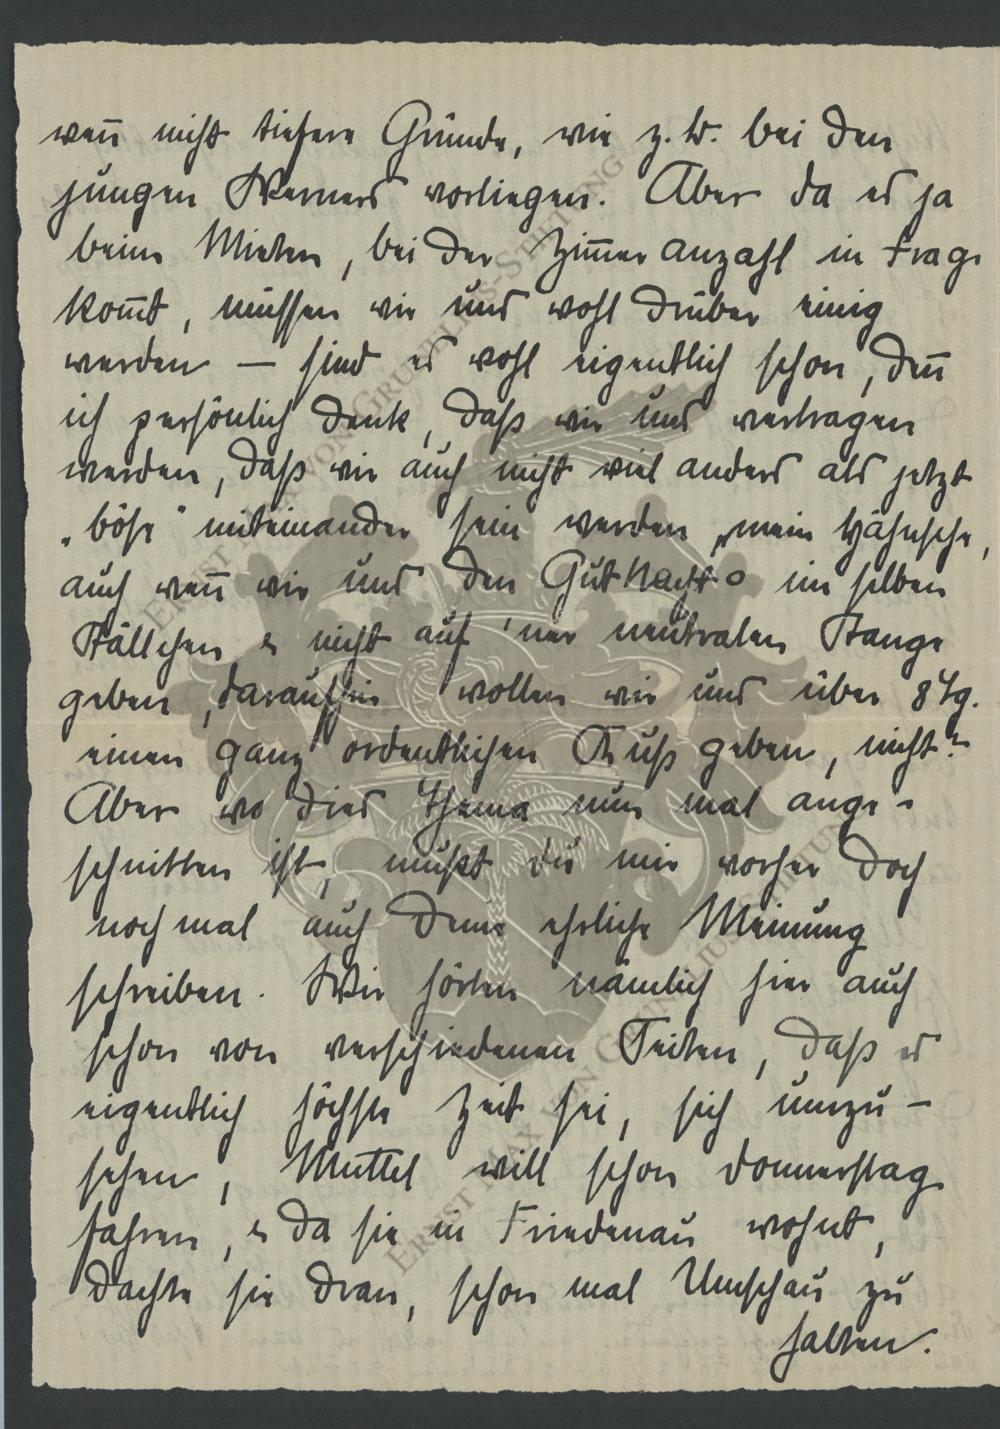 wen̄ nicht tiefere Gründe, wie z. B. bei den
jungen Werners vorliegen. Aber da es ja
beim Mieten, bei der Zim̄eranzahl in Frage
kom̄t, müssen wir uns wohl drüber einig
werden — sind es wohl eigentlich schon, den̄
ich persönlich denk, daß wir uns vertragen
werden, daß wir auch nicht viel anders als jetzt
„böse" miteinander sein werden, mein Hähnsche,
auch wen̄ wir uns den Gutnacht- im selben
Ställchen & nicht auf 'ner neutralen Stange
geben, daraufhin wollen wir uns über 8 Tg.
einen ganz ordentlichen Kuß geben, nicht?
Aber wo dies Thema nun mal ange-
schnitten ist, mußt du mir vorher doch
noch mal auch deine ehrliche Meinung
schreiben. Wir hörten nämlich hier auch
schon von verschiedenen Seiten, daß es
eigentlich höchste Zeit sei, sich umzu-
sehen, Muttel will schon Donnerstag
fahren, & da sie in Friedenau wohnt,
dachte sie dran, schon mal Umschau zu
halten.
ERNST MAX VON GRUNELIUS-STIFTUNG
ERNST MAX VON GRUNELIUS-STIFTUNG